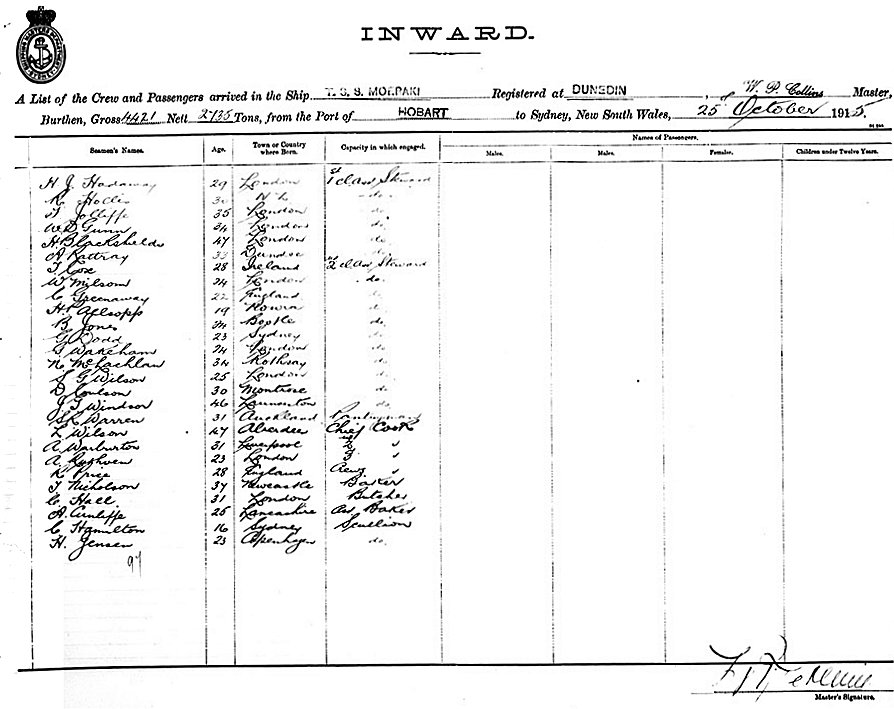 INWARD.
A List of the Crew and Passengers arrived in the Ship T. S. S. MOERAKI Registered at DUNEDIN, of W. P. Collins Master,
Burthen, Gross 4421 Nett 2735 Tons, from the Port of HOBART to Sydney, New South Wales, 25 October 1915.
Seamen's Names. Age. Town or Country where Born. Capacity in which engaged. Names of Passengers.
Males. Males. Females. Children under Twelve Years.
H. J. Hadaway 29 London 1st class Steward
R. Hollis 30 N Z do.
Jolliffe 35 London do.
W. D. Gunn 34 London do.
H. Blackshields 47 London do
A Rattray 33 Dundee do
T Cox 28 Ireland 2 class Steward
W. Milsom 24 London do.
C Greenaway 22 England do
H. Allsopp 19 Nowra do
B. Jones 24 Bootle do.
G Dodd 23 Sydney do.
Wakeham 24 London do.
N. McLachlan 34 Rothsay do
S G Wilson 25 London do.
D Coulson 30 Montrose do
J. T Windsor 46 Launceston do.
Warren 31 Auckland Pantryman
Z Wilson 47 Aberdeen Chief Cook
A. Warburton 31 Liverpool 2 "
A. Ruthven 23 London 3 "
Price 28 England "
T Nicholson 37 Newcastle Baker
C. Hall. 31 London Butcher
A. Cunliffe 25 Lancashire Baker
C Hamilton 16 Sydney Scullion
H. Jensen 23 Copenhagen do.
97
Master's Signature.